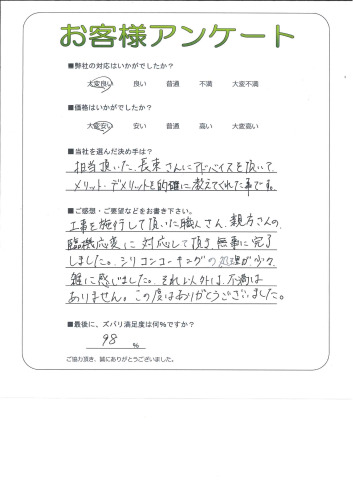 お客様アンケート
■弊社の対応はいかがでしたか？
大変良い 良い 普通 不満 大変不満
■価格はいかがでしたか？
大変安い 安い 普通 高い 大変高い
■当社を選んだ決め手は？
担当頂いた、長束さんにアドバイスを頂いて
メリット・デメリットを的確に教えてくれた事です。
■ご感想・ご要望などをお書き下さい。
工事を施行して頂いた職人さん、親方さんの、
臨機応変に対応して頂き無事に完了
しました。シリコンコーキングの処理が少々
雑に感じました。それ以外は、不満は
ありません。この度はありがとうございました。
■最後に、ズバリ満足度は何％ですか？
98 %
ご協力頂き、誠にありがとうございました。